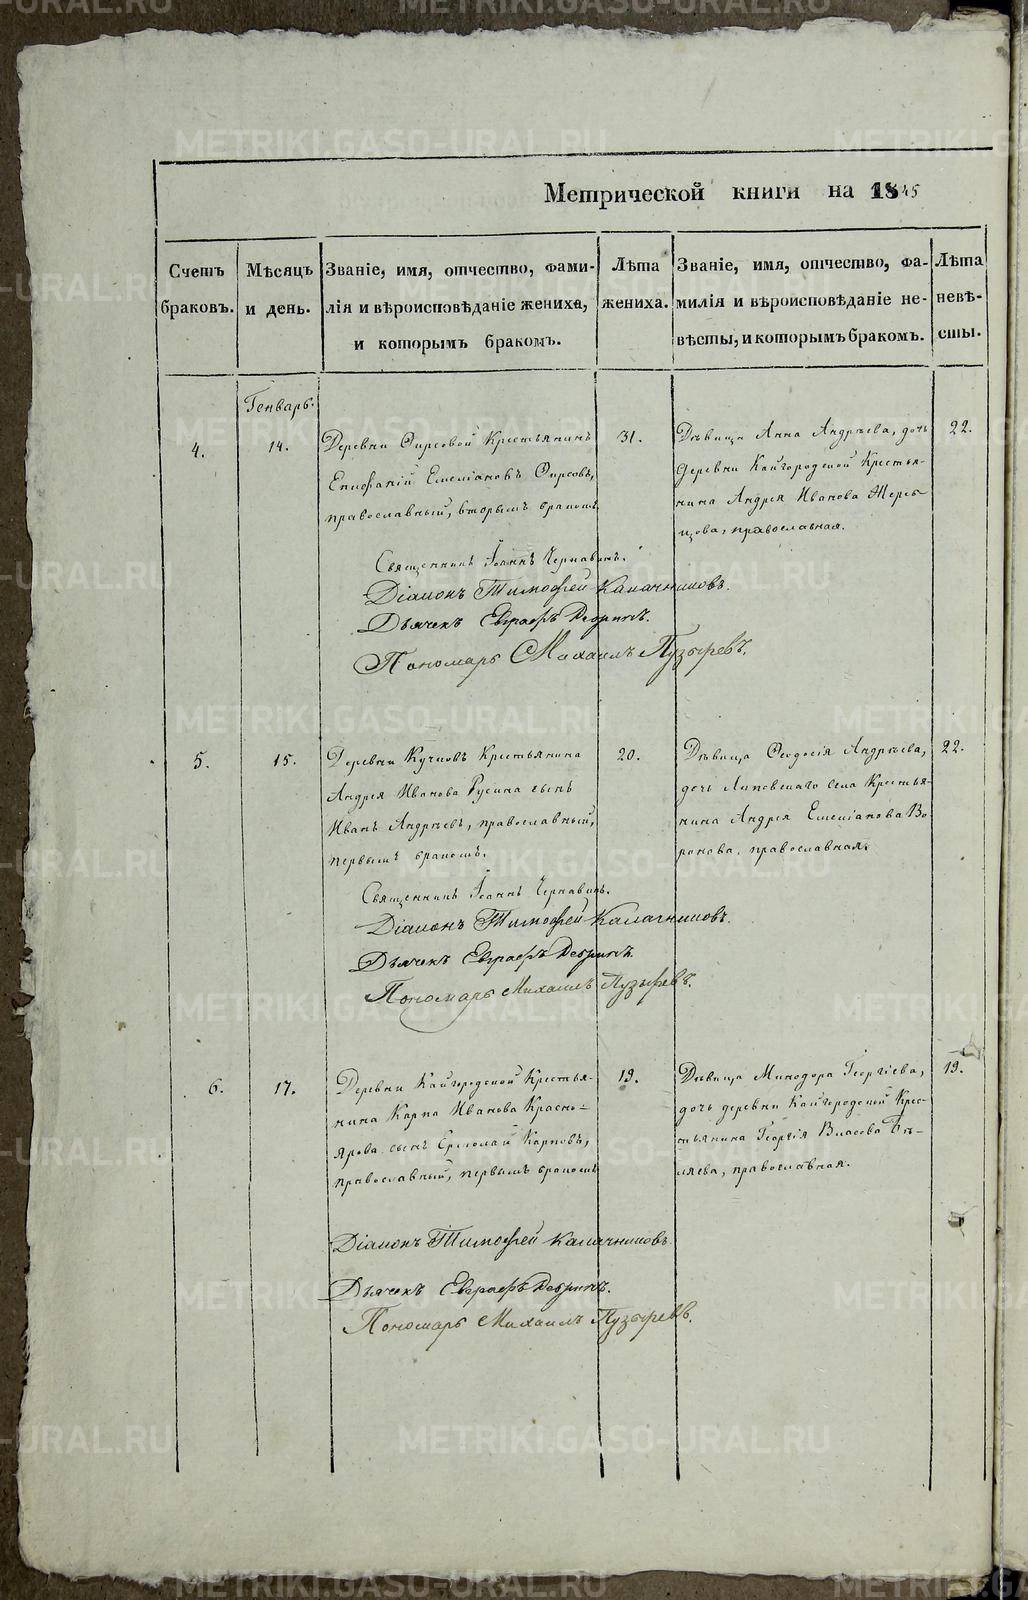 Метрической книги на 1845
Счетъ браковъ.
Мѣсяцъ и день.
Званіе, имя, отчество, фами-
лія и вѣроисповѣданіе жениха,
и которымъ бракомъ.
Лѣта жениха.
Званіе, имя, отчество, фа-
милія и вѣроисповѣданіе не-
вѣсты, и которымъ бракомъ.
Лѣта невѣ-
сты.
Генварь.
4.
14.
Деревни Фирсовой Крестьянинъ
Епифаній Емеліановъ Фирсовъ,
православный, вторымъ бракомъ.
31.
Дѣвица Анна Андрѣева, дочь
деревни Кайгородской Крестья-
нина Андрея Иванова
православная.
22.
Священникъ Іоаннъ Чернавинъ.
Діаконъ Тимофей Калачниковъ.
Дьячекъ Евграфъ
Пономарь Михаилъ Пузыревъ.
5.
15.
Деревни Кучковъ Крестьянина
Андрея Иванова Русина сынъ
Иванъ Андрѣевъ, православный,
первымъ бракомъ.
20.
Дѣвица Феодосія Андрѣева,
дочь Липовскаго села Крестья-
нина Андрея Емеліанова Во-
ронова, православная.
22.
Священникъ Іоаннъ Чернавинъ.
Діаконъ Тимофей Калачниковъ.
Дьячекъ Евграфъ
Пономарь Михаилъ Пузыревъ.
6.
17.
Деревни Кайгородской Крестья-
нина Карпа Иванова Красно-
ярова сынъ Ермолай Карповъ,
православный, первымъ бракомъ
19.
Дѣвица Минодора Георгіева,
дочь деревни Кайгородской Крес-
тьянина Георгія Власова Бѣ-
ляева, православная.
19.
Діаконъ Тимофей Калачниковъ
Дьячекъ Евграфъ
Пономарь Михаилъ Пузыревъ.
METRIKI.GASO-URAL.RU